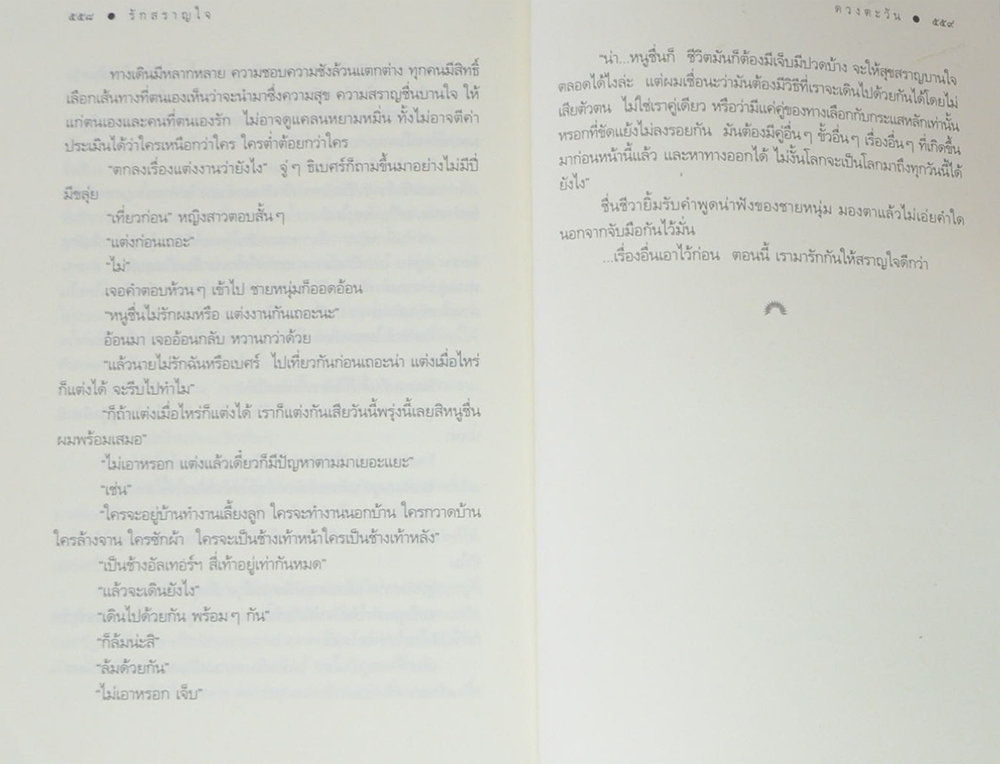 ๕๕๘ ● รักสราญใจ
ทางเดินมีหลากหลาย ความชอบความชังล้วนแตกต่าง ทุกคนมีสิทธิ์
เลือกเส้นทางที่ตนเองเห็นว่าจะนำมาซึ่งความสุข ความสราญชื่นบานใจ ให้
แก่ตนเองและคนที่ตนเองรัก ไม่อาจดูแคลนหยามหมิ่น ทั้งไม่อาจตีค่า
ประเมินได้ว่าใครเหนือกว่าใคร ใครต่ำต้อยกว่าใคร
“ตกลงเรื่องแต่งงานว่ายังไง” จู่ๆ ธิเบศร์ก็ถามขึ้นมาอย่างไม่มีปี่
มีขลุ่ย
“เที่ยวก่อน” หญิงสาวตอบสั้นๆ
“แต่งก่อนเถอะ”
“ไม่”
เจอคำตอบห้วนๆ เข้าไป ชายหนุ่มก็ออดอ้อน
“หนูชื่นไม่รักผมหรือ แต่งงานกันเถอะนะ”
อ้อนมา เจออ้อนกลับ หวานกว่าด้วย
“แล้วนายไม่รักฉันหรือเบศร์ ไปเที่ยวกันก่อนเถอะน่า แต่งเมื่อไหร่
ก็แต่งได้ จะรีบไปทำไม”
“ก็ถ้าแต่งเมื่อไหร่ก็แต่งได้ เราก็แต่งกันเสียวันนี้พรุ่งนี้เลยสิหนูชื่น
ผมพร้อมเสมอ”
“ไม่เอาหรอก แต่งแล้วเดี๋ยวก็มีปัญหาตามมาเยอะแยะ”
“เช่น”
“ใครจะอยู่บ้านทำงานเลี้ยงลูก ใครจะทำงานนอกบ้าน ใครกวาดบ้าน
ใครล้างจาน ใครซักผ้า ใครจะเป็นช้างเท้าหน้าใครเป็นช้างเท้าหลัง”
“เป็นช้างอัลเทอร์ฯ สี่เท้าอยู่เท่ากันหมด”
“แล้วจะเดินยังไง”
“เดินไปด้วยกัน พร้อมๆ กัน”
“ก็ล้มน่ะสิ”
“ล้มด้วยกัน”
“ไม่เอาหรอก เจ็บ”
ดวงตะวัน ● ๕๕๙
“น่า...หนูชื่นก็ ชีวิตมันก็ต้องมีเจ็บมีปวดบ้าง จะให้สุขสราญบานใจ
ตลอดได้ไงล่ะ แต่ผมเชื่อนะว่ามันต้องมีวิธีที่เราจะเดินไปด้วยกันได้โดยไม่
เสียตัวตน ไม่ใช่เราคู่เดียว หรือว่ามีแค่คู่ของทางเลือกกับกระแสหลักเท่านั้น
หรอกที่ขัดแย้งไม่ลงรอยกัน มันต้องมีคู่อื่นๆ ขั้วอื่นๆ เรื่องอื่นๆ ที่เกิดขึ้น
มาก่อนหน้านี้แล้ว และหาทางออกได้ ไม่งั้นโลกจะเป็นโลกมาถึงทุกวันนี้ได้
ยังไง”
ชื่นชีวายิ้มรับคำพูดน่าฟังของชายหนุ่ม มองตาแล้วไม่เอ่ยคำใด
นอกจากจับมือกันไว้มั่น
...เรื่องอื่นเอาไว้ก่อน ตอนนี้ เรามารักกันให้สราญใจดีกว่า